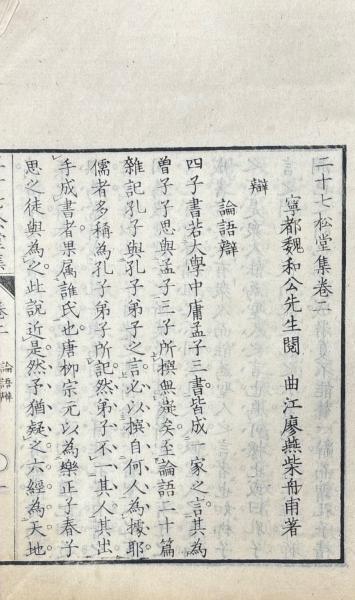 二十七松堂集卷二
寧都魏和公先生閱　曲江廖燕柴舟甫著
辯
論語辯
四子書若大學中庸孟子三書皆成一家之言其為
曾子子思與孟子三子所撰無疑矣至論語二十篇
雜記孔子與孔子弟子之言必以撰自何人為據耶
儒者多稱為孔子弟子所記然弟子不一其人其出
手成書者果属誰氏也唐柳宗元以為樂正子春子
思之徒與為之此說近是然予猶疑之六經為天地
論語辯